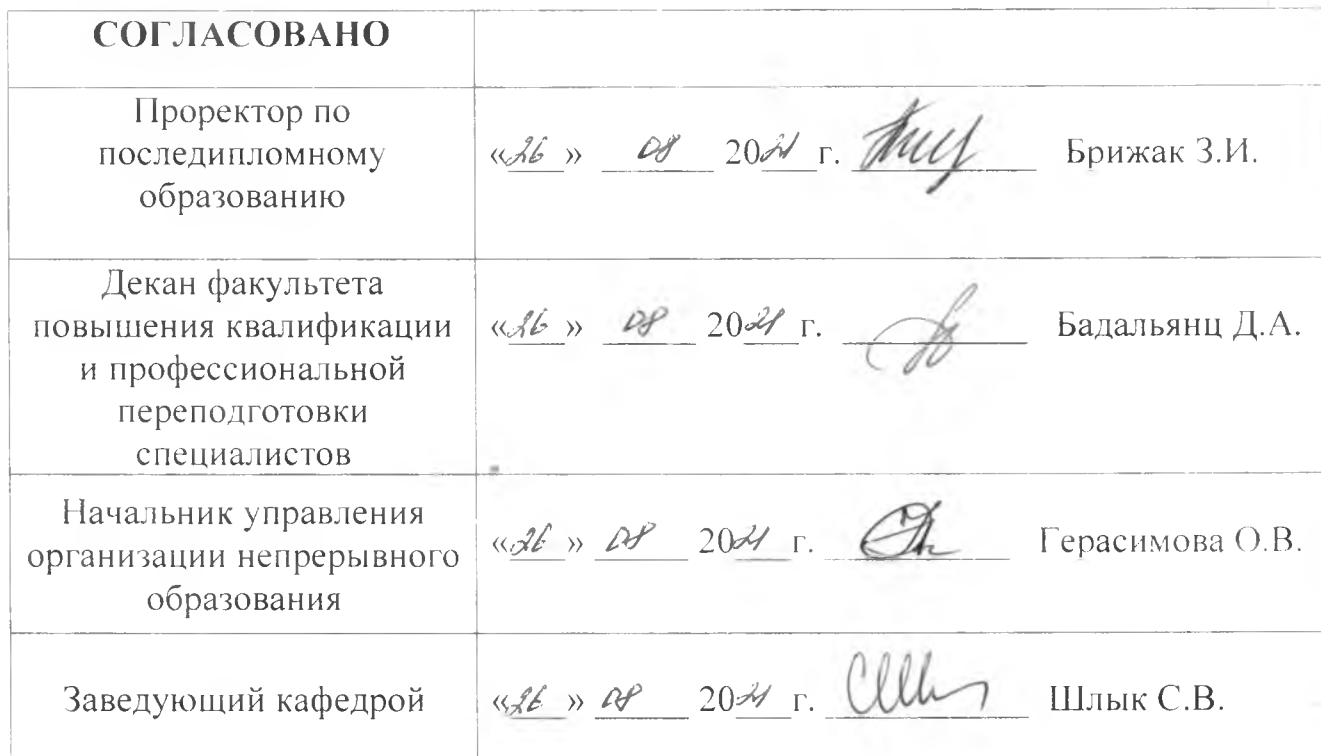 СОГЛАСОВАНО
Проректор по
последипломному
образованию
«26» 08 2021 г. Брижак З.И.
Декан факультета
повышения квалификации
и профессиональной
переподготовки
специалистов
«26» 08 2021 г. Бадальянц Д.А.
Начальник управления
организации непрерывного
образования
«26» 08 2021 г. Герасимова О.В.
Заведующий кафедрой
«26» 08 2021 г. Шлык С.В.